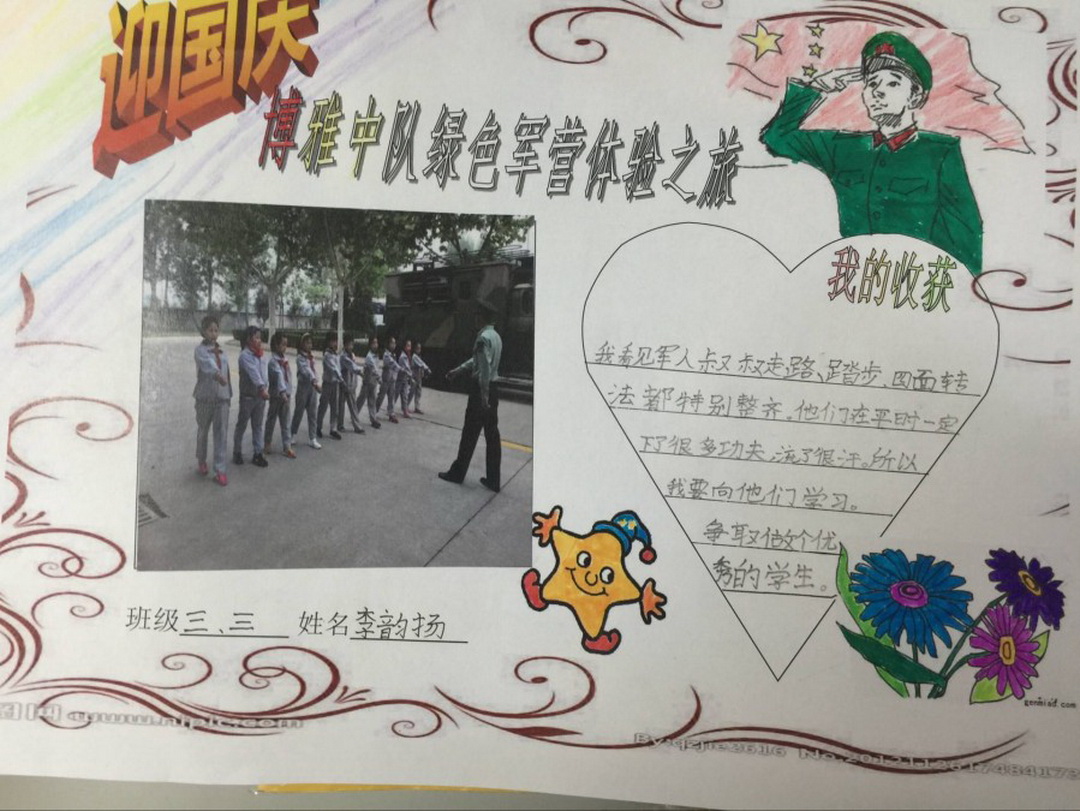 迎国庆
博雅中队绿色军营体验之旅
我的收获
我看见军人叔叔走路、踏步、四面转
法都特别整齐,他们在平时一定
下了很多功夫,流了很汗。所以
我要向他们学习。
争取做个优
秀的学生。
班级三、三 姓名李韵扬
图网 www.nipic.com
By:qzjie2616 No.2012112617484173